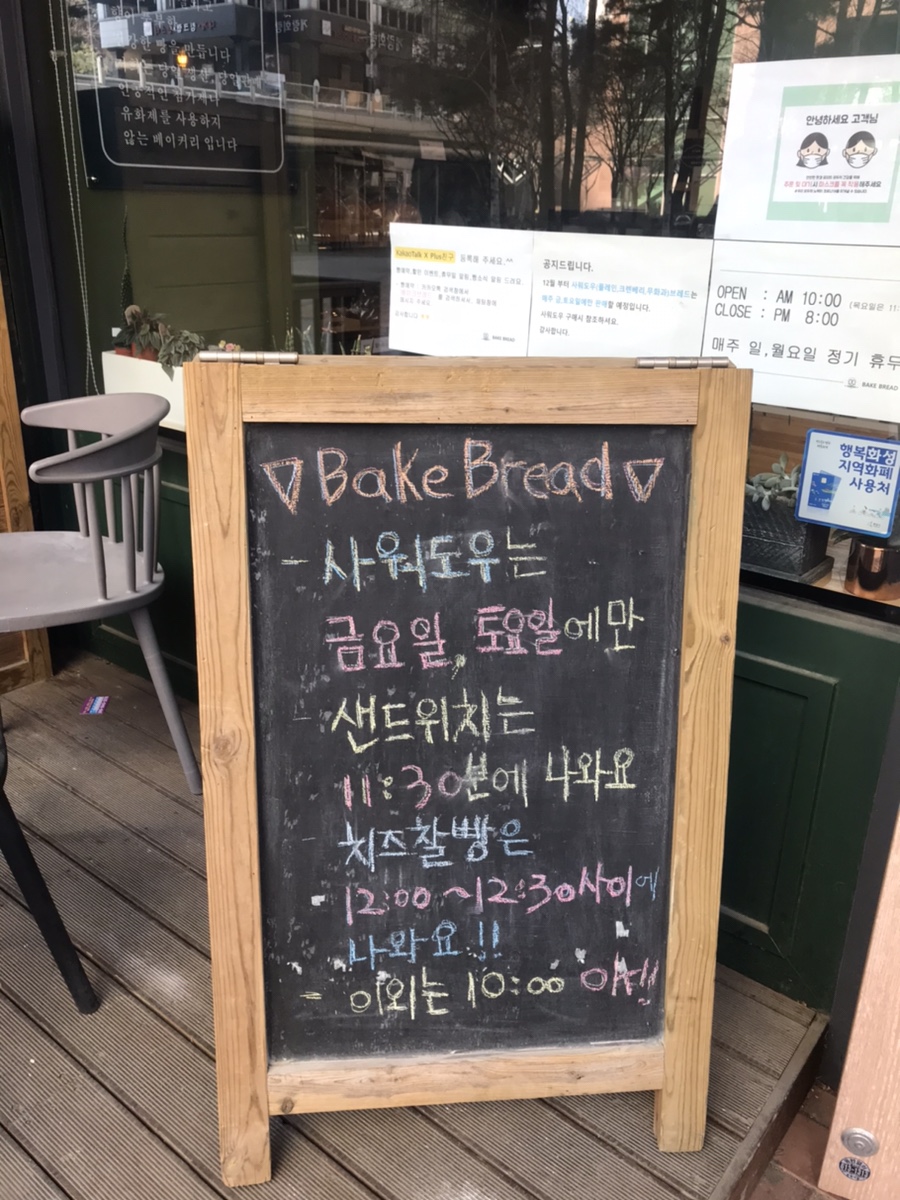 유화제를 사용하지
않는 베이커리 입니다
안녕하세요 고객님
공지드립니다.
12월 부터 사워도우(플레인,크랜베리,무화과)브레드는
매주 금,토요일에만 판매할 예정입니다.
사워도우 구매시 참조하세요.
감사합니다.
BAKE BREAD
OPEN : AM 10:00 (목요일은 11:
CLOSE : PM 8:00
매주 일,월요일 정기 휴무
BAKE BREAD
행복화성
지역화폐
사용처
Bake Bread
- 사워도우는
금요일, 토요일에만
- 샌드위치는
11:30분에 나와요
치즈찰빵은
- 12:00~12:30사이에
나와요!!
- 이외는 10:00 이전!!